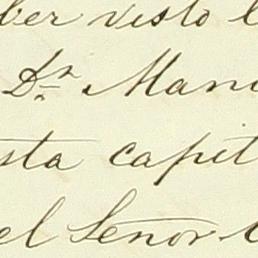 ber visto l
Dn. Man
sta capit
el Señor C